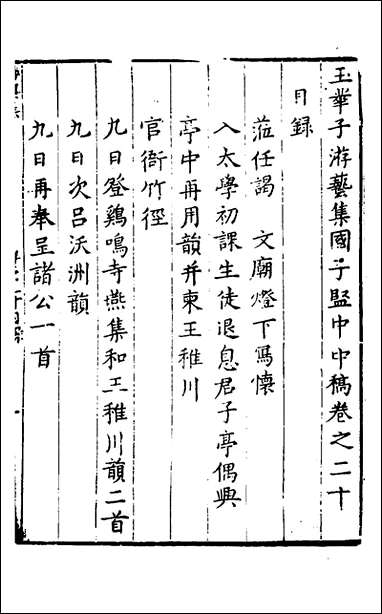 玉華子游藝集國子監中中稿卷之二十
目録
蒞任謁　文廟燈下寫懐
入太學初課生徒退息君子亭偶興
亭中再用韻并柬王稚川
官衙竹徑
九日登鷄鳴寺燕集和王稚川韻二首
九日次吕沃洲韻
九日再奉呈諸公一首